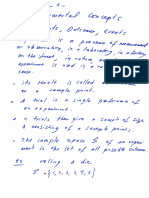 - A -
Fundamental Concepts
Experiments, Outcomes, Events
is a process of measurement
or observation, in a laboratory, in a factory
on the street, in nature,
experiment is
• its result is called
a sample point.
• A trial is a single performance of
an experiment.
• n trials then give a sample of size n
consisting of n sample points.
• The sample space S of an exper
iment is the set of all possible outcomes
EX rolling a die
S = {1, 2, 3, 4, 5, 6}